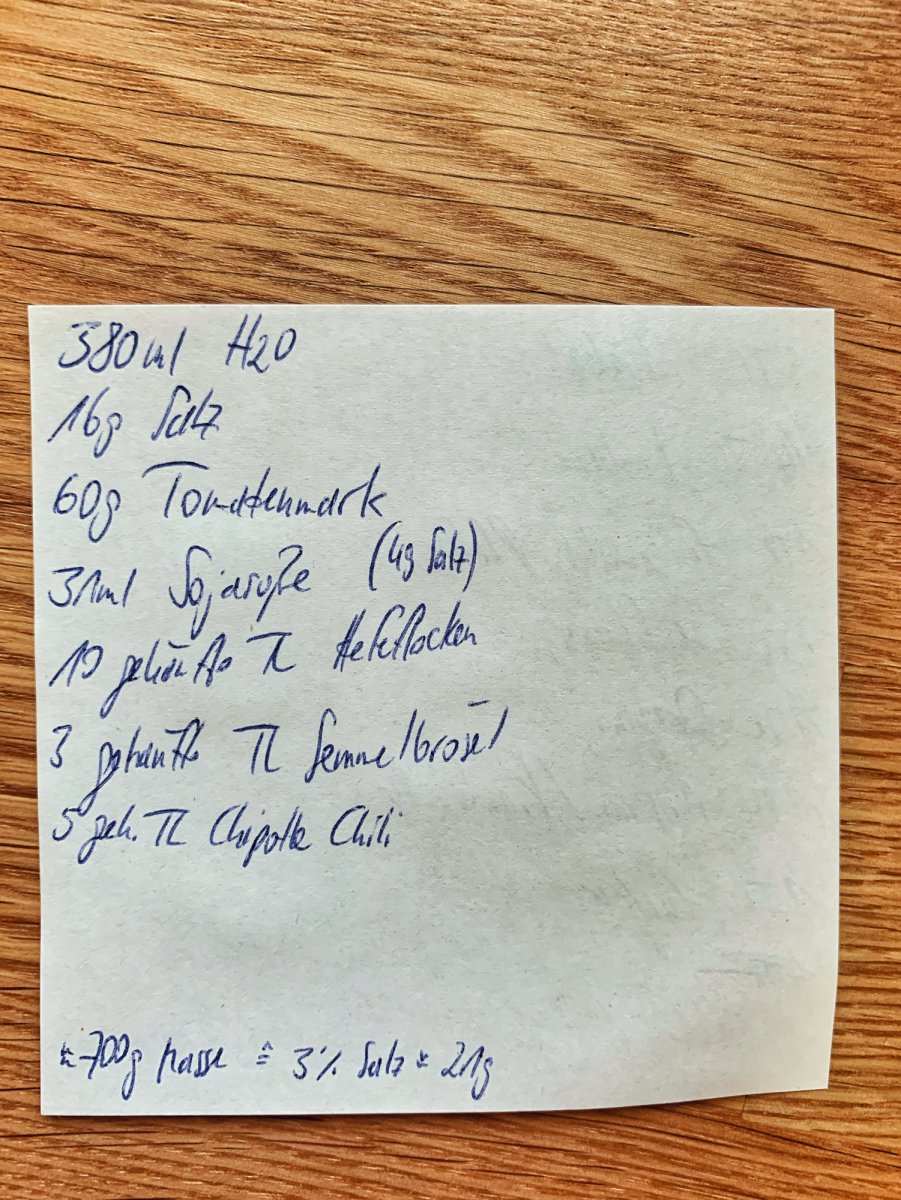 380ml H2O
16g Salz
60g Tomatenmark
31ml Sojasoße (4g Salz)
10 gehäufte TL Hefeflocken
3 gehäufte TL Semmelbrösel
5 geh. TL Chipotle Chili
≈ 700g Masse ≙ 3% Salz ≈ 21g